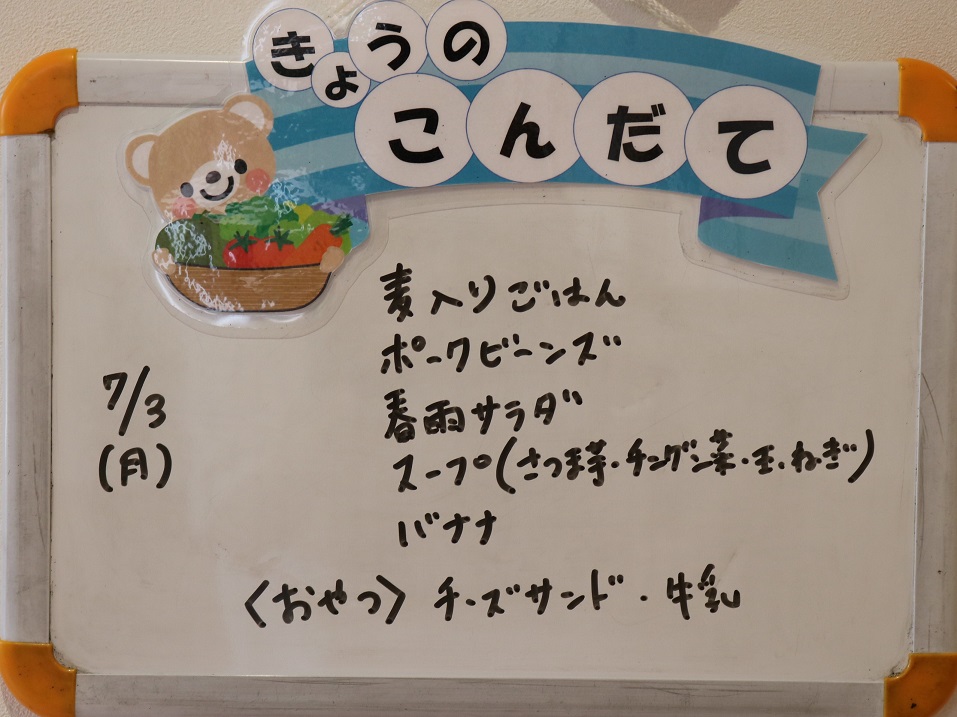 きょうの
こんだて
麦入りごはん
ポークビーンズ
7/3
(月)
春雨サラダ
スープ(さつま芋・チンゲン菜・玉ねぎ)
バナナ
〈おやつ〉 チーズサンド・牛乳